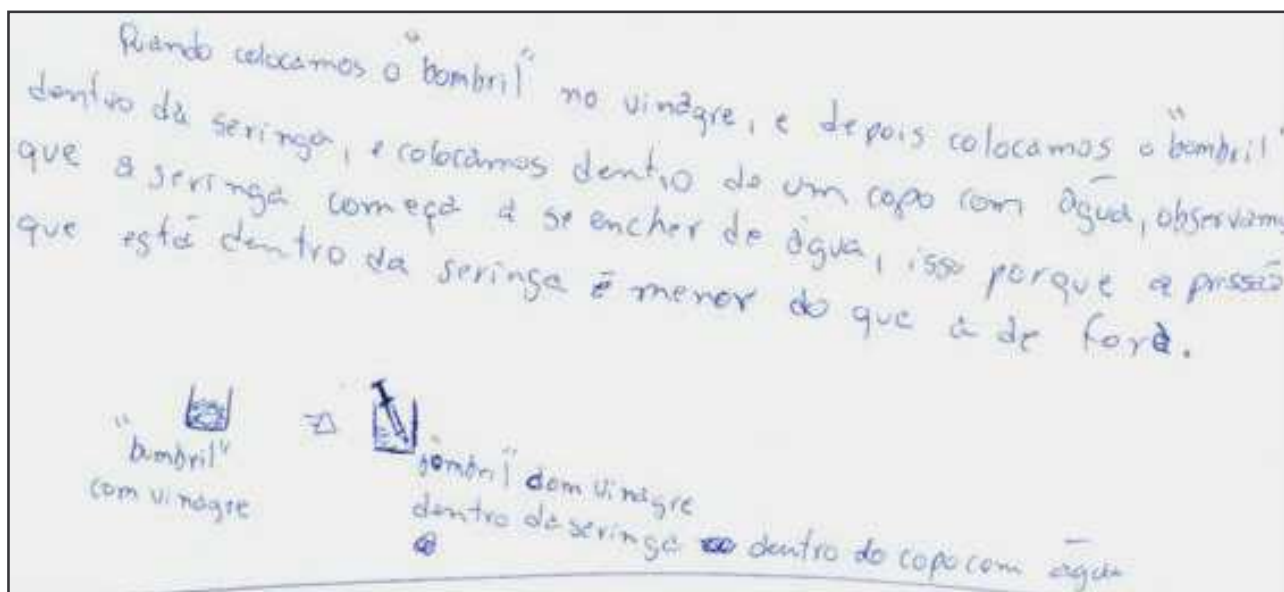 Quando colocamos o "bombril" no vinagre, e depois colocamos o "bombril"
dentro da seringa, e colocamos dentro de um copo com água, observamos
que a seringa começa a se encher de água, isso porque a pressão
que está dentro da seringa é menor do que a de fora.
"bombril"
com vinagre
"bombril" com vinagre
dentro da seringa dentro do copo com água